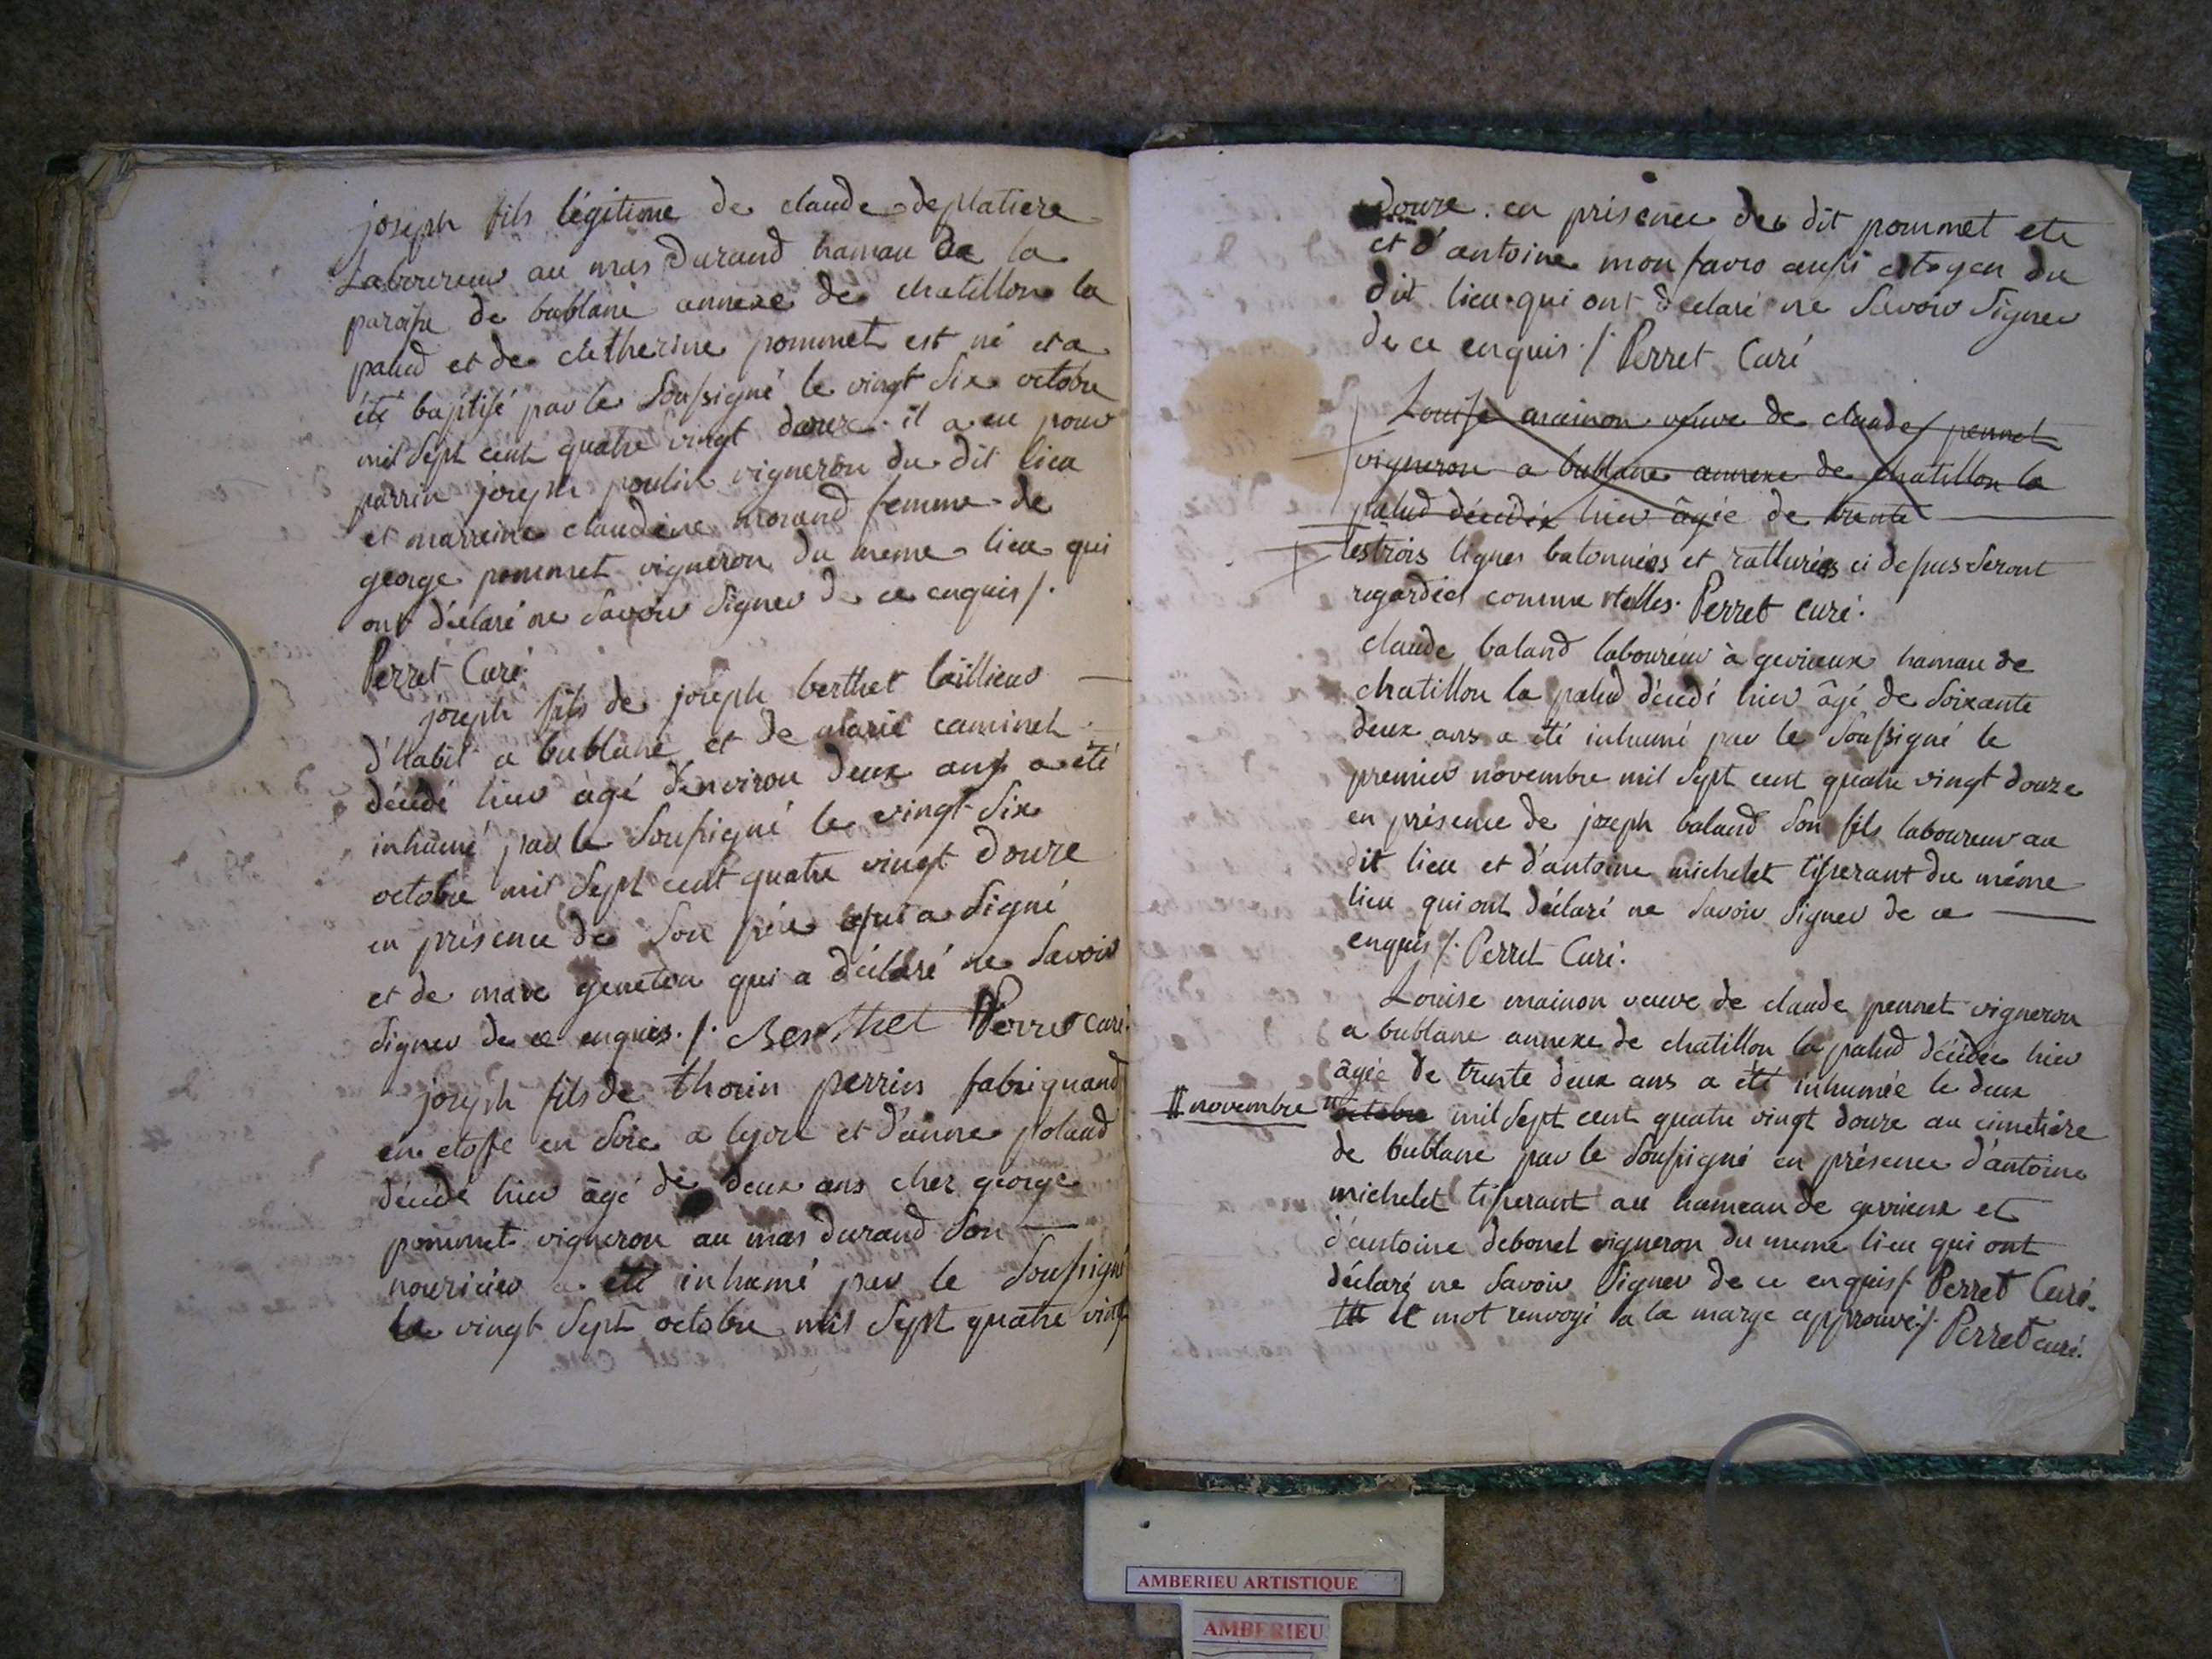 joseph fils légitime de claude deplatiere
Laboureur au mas Durand hamau de la
paroisse de bublane annexe de chatillon la
palud et de catherine pommet est né et a
été baptisé par le soussigné le vingt six octobre
mil sept cent quatre vingt douze. il a eu pour
parrin joseph poulin vigneron du dit lieu
et marreine claudine morand femme de
george pommet vigneron du meme lieu qui
ont déclaré ne savoir signer de ce enquis /.
Perret Curé
joseph fils de joseph berthet taillieur
d'habit a bublane et de marie caminet
décédé hier agé d'environ deux ans a été
inhumé par le soussigné le vingt six
octobre mil sept cent quatre vingt douze
en présence de son père qui a signé
et de marc geneton qui a déclaré ne savoir
signer de ce enquis. /. Berthet Perret curé.
joseph fils de thorin perrin fabriquand
en etoffe en soie a lyon et d'anne poland
décédé hier âgé de deux ans chez george
pommet vigneron au mas durand son
nouricier a été inhumé par le soussigné
le vingt sept octobre mil sept quatre vingt
douze. en présence des dit pommet ete
et d'antoine monfavro aussi citoyen du
dit lieu qui ont declaré ne savoir signer
de ce enquis ./ Perret Curé
Louise mainon veuve de claude pennet
vigneron a bublane annexe de chatillon la
palud décédée hier âgée de trente
les trois lignes batonnées et ratturées ci dessus seront
regardées comme nulles. Perret curé.
claude baland laboureur à gevrieux hamau de
chatillon la palud décédé hier âgé de soixante
deux ans a été inhumé par le soussigné le
premier novembre mil sept cent quatre vingt douze
en présence de joseph baland son fils laboureur au
dit lieu et d'antoine michelet tisserant du même
lieu qui ont déclaré ne savoir signer de ce
enquis /. Perret Curé.
Louise mainon veuve de claude pennet vigneron
a bublane annexe de chatillon la palud décédée hier
âgée de trente deux ans a été inhumée le deux
novembre octobre mil sept cent quatre vingt douze au cimetière
de bublane par le soussigné en présence d'antoine
michelet tisserant au hameau de gevrieux et
d'antoine debonel vigneron du meme lieu qui ont
déclaré ne savoir signer de ce enquis /. Perret Curé.
le mot renvoyé a la marge approuvé /. Perret curé.
AMBERIEU ARTISTIQUE
AMBERIEU